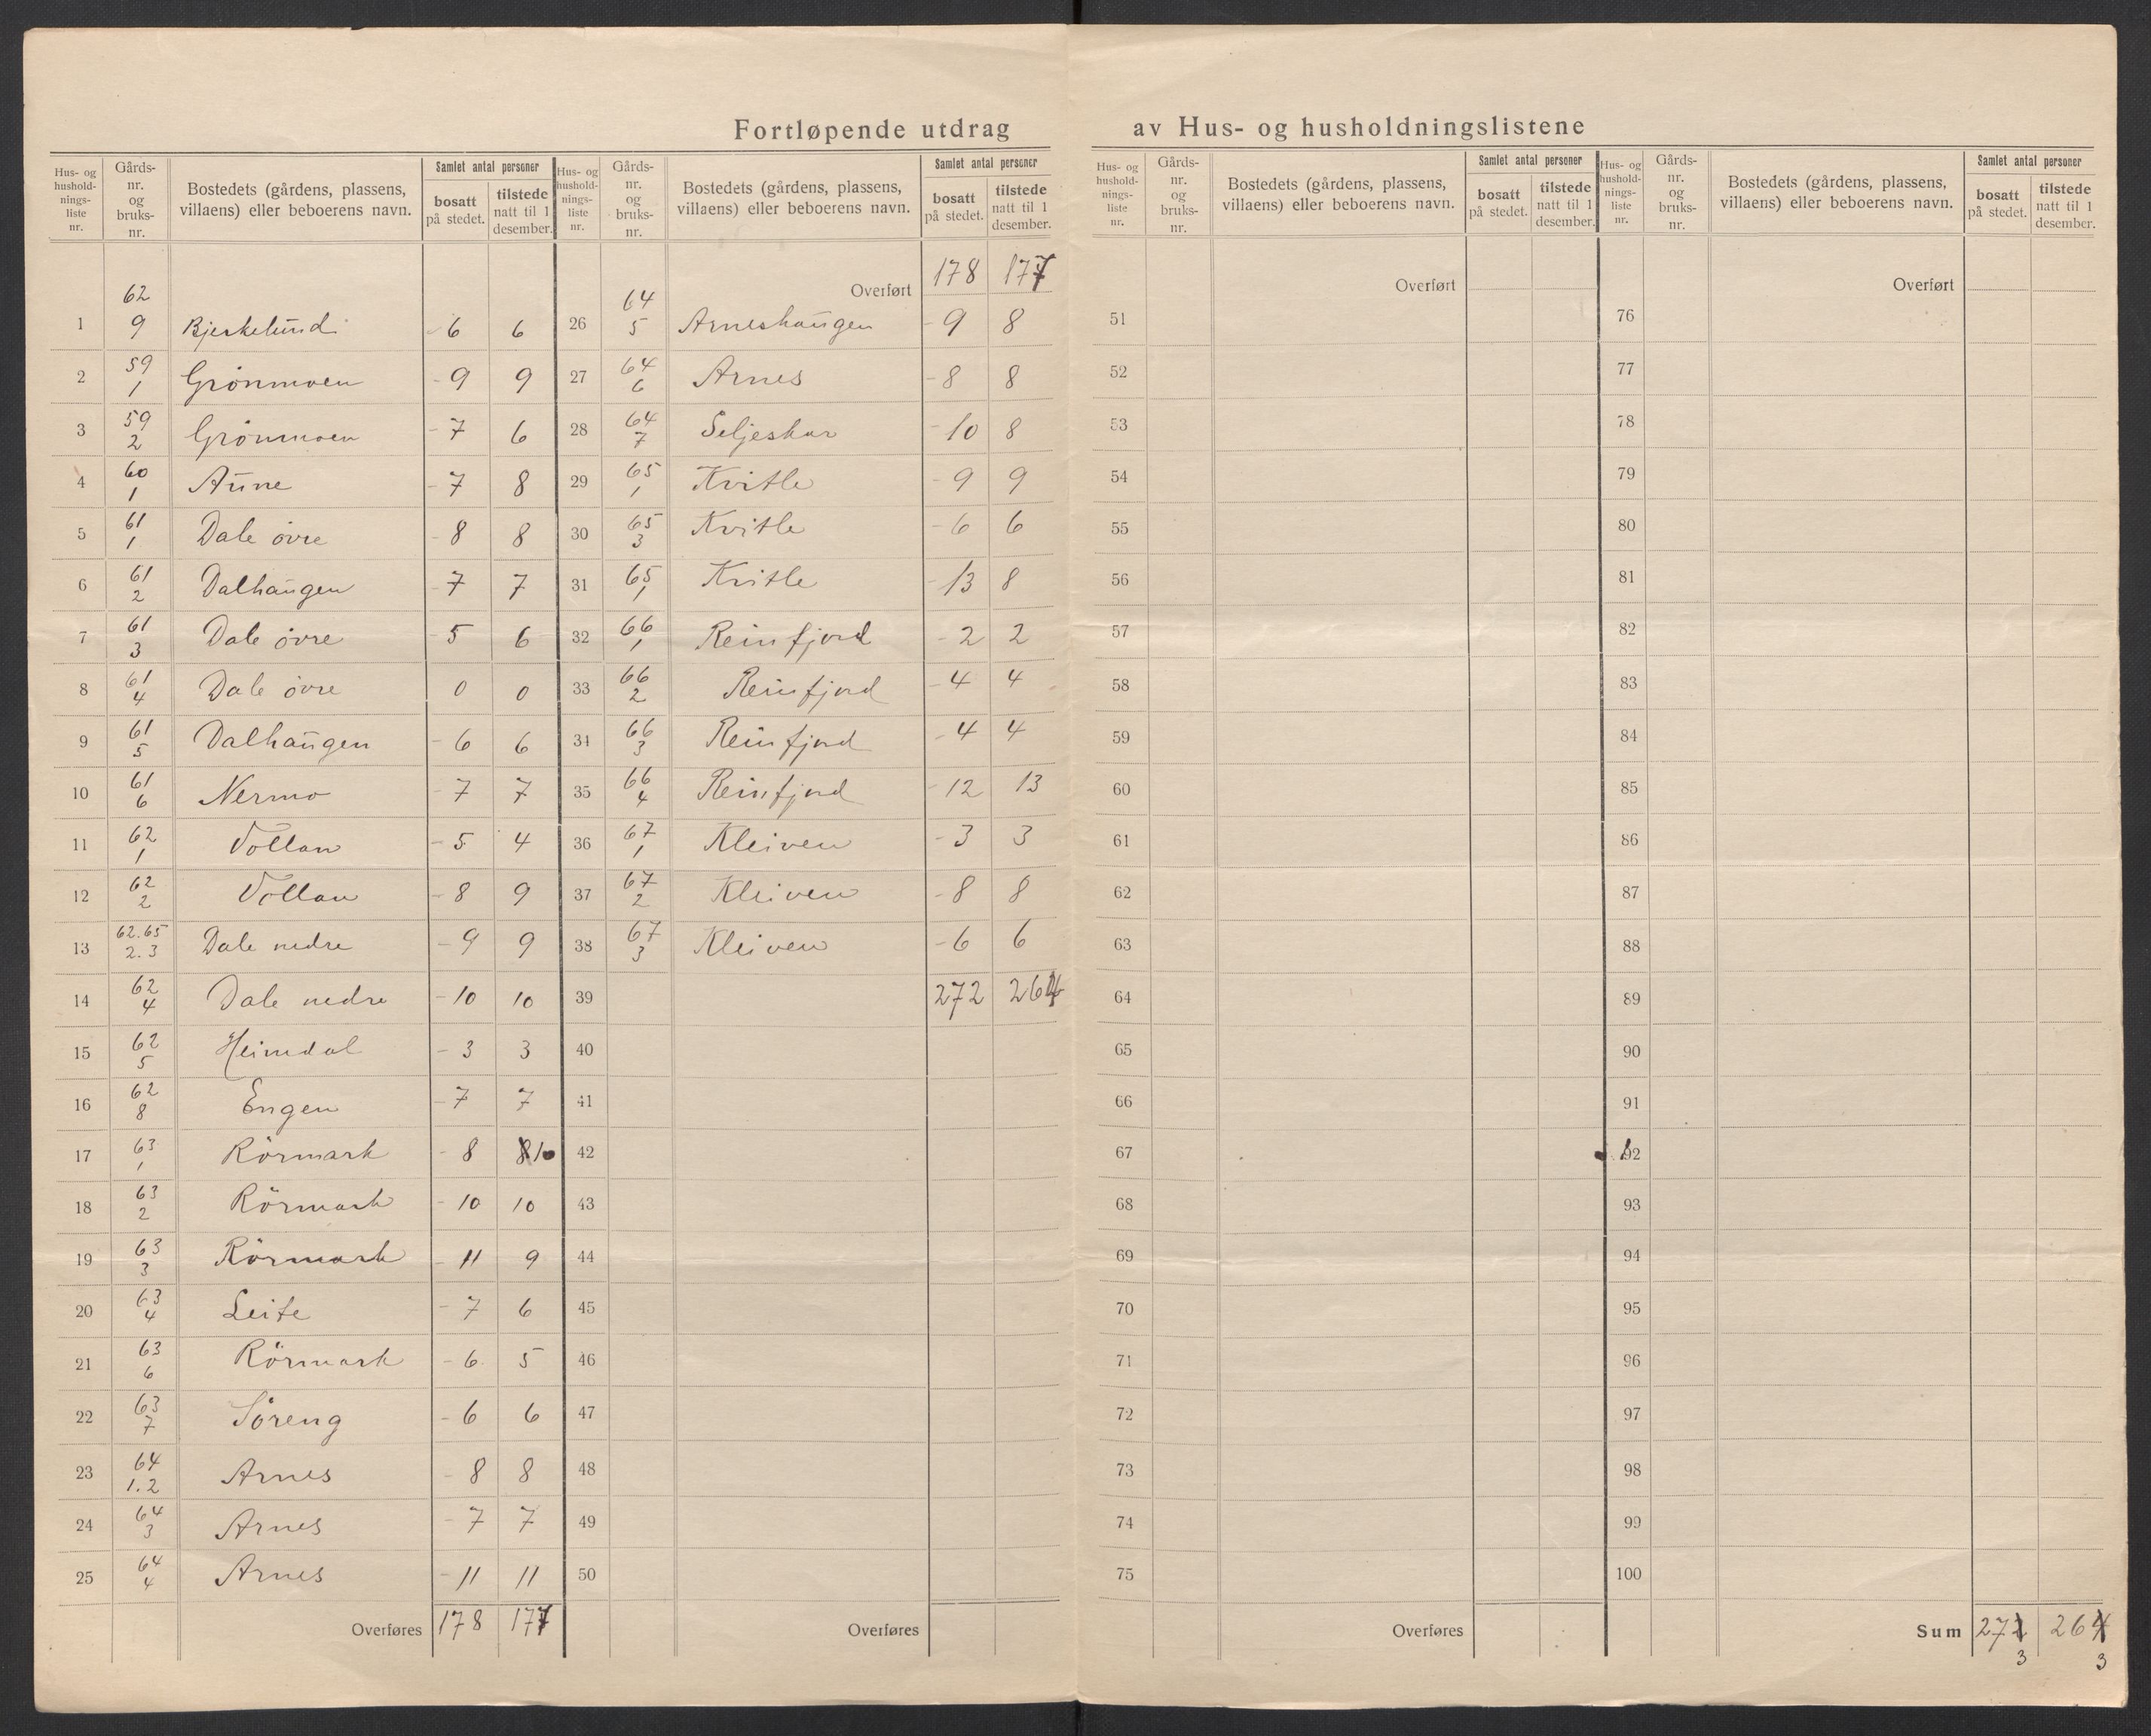 Fortløpende utdrag av Hus- og husholdningslistene
Hus- og husholdnings-liste nr. | Gårds-nr. og bruks-nr. | Bostedets (gårdens, plassens, villaens) eller beboerens navn. | Samlet antal personer | bosatt på stedet. | tilstede natt til 1 desember.
1 | 62 9 | Bjerkelund | 6 | 6
2 | 59 1 | Grönmoen | 9 | 9
3 | 59 2 | Grönmoen | 7 | 6
4 | 60 1 | Aune | 7 | 8
5 | 61 1 | Dale övre | 8 | 8
6 | 61 2 | Dalhaugen | 7 | 7
7 | 61 3 | Dale övre | 5 | 6
8 | 61 4 | Dale övre | 0 | 0
9 | 61 5 | Dalhaugen | 6 | 6
10 | 61 6 | Nermo | 7 | 7
11 | 62 1 | Vollan | 5 | 4
12 | 62 2 | Vollan | 8 | 9
13 | 62.65 2.3 | Dale nedre | 9 | 9
14 | 62 4 | Dale nedre | 10 | 10
15 | 62 5 | Heimdal | 3 | 3
16 | 62 8 | Engen | 7 | 7
17 | 63 1 | Rörmark | 8 | 8 10
18 | 63 2 | Rörmark | 10 | 10
19 | 63 3 | Rörmark | 11 | 9
20 | 63 4 | Leite | 7 | 6
21 | 63 6 | Rörmark | 6 | 5
22 | 63 7 | Söreng | 6 | 6
23 | 64 1.2 | Arnes | 8 | 8
24 | 64 3 | Arnes | 7 | 7
25 | 64 4 | Arnes | 11 | 11
Overføres | 178 | 177
Hus- og husholdnings-liste nr. | Gårds-nr. og bruks-nr. | Bostedets (gårdens, plassens, villaens) eller beboerens navn. | Samlet antal personer | bosatt på stedet. | tilstede natt til 1 desember.
Overført | 178 | 177
26 | 64 5 | Arneshaugen | 9 | 8
27 | 64 6 | Arnes | 8 | 8
28 | 64 7 | Seljeskar | 10 | 8
29 | 65 1 | Kvitle | 9 | 9
30 | 65 3 | Kvitle | 6 | 6
31 | 65 1 | Kvitle | 13 | 8
32 | 66 1 | Reinfjord | 2 | 2
33 | 66 2 | Reinfjord | 4 | 4
34 | 66 3 | Reinfjord | 4 | 4
35 | 66 4 | Reinfjord | 12 | 13
36 | 67 1 | Kleiven | 3 | 3
37 | 67 2 | Kleiven | 8 | 8
38 | 67 3 | Kleiven | 6 | 6
39 | 272 | 264
40
41
42
43
44
45
46
47
48
49
50
Overføres
Hus- og husholdnings-liste nr. | Gårds-nr. og bruks-nr. | Bostedets (gårdens, plassens, villaens) eller beboerens navn. | Samlet antal personer | bosatt på stedet. | tilstede natt til 1 desember.
Overført
51
52
53
54
55
56
57
58
59
60
61
62
63
64
65
66
67
68
69
70
71
72
73
74
75
Overføres
Hus- og husholdnings-liste nr. | Gårds-nr. og bruks-nr. | Bostedets (gårdens, plassens, villaens) eller beboerens navn. | Samlet antal personer | bosatt på stedet. | tilstede natt til 1 desember.
Overført
76
77
78
79
80
81
82
83
84
85
86
87
88
89
90
91
92
93
94
95
96
97
98
99
100
Sum | 272 | 264
3 | 3